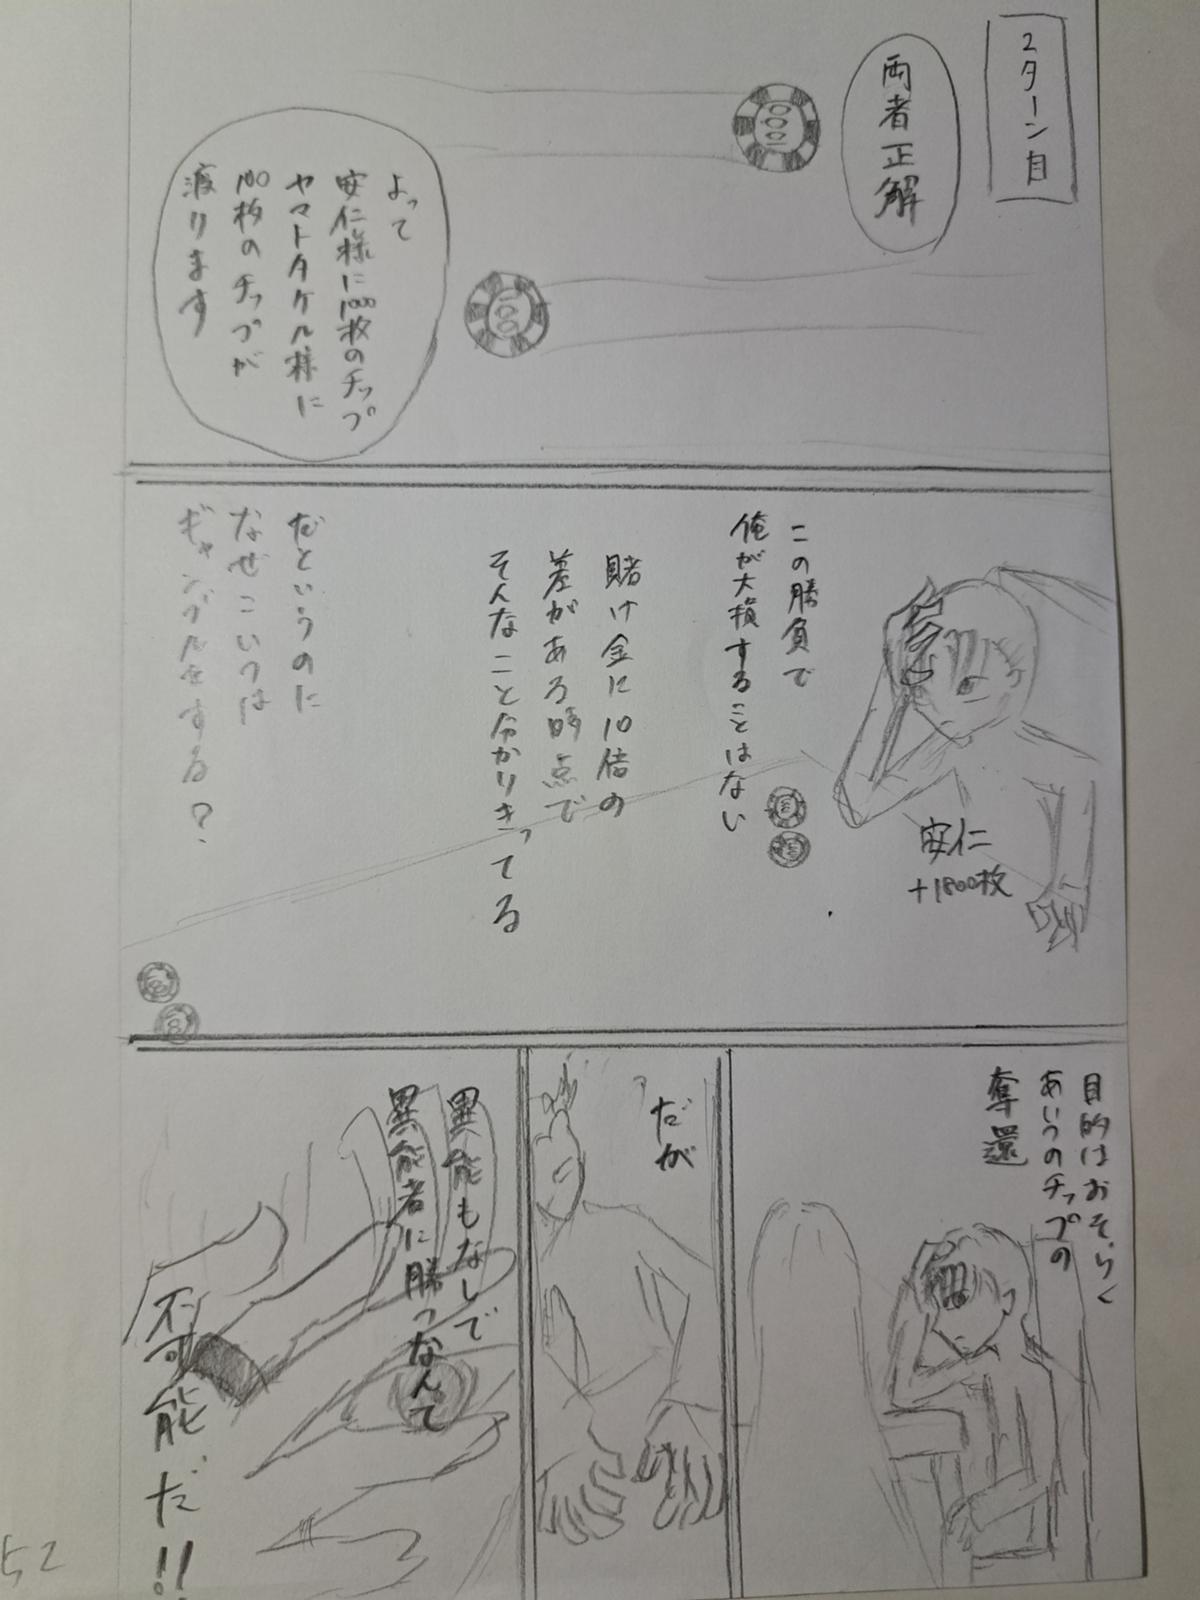 2ターン目
両者正解
1000
100
よって
安仁様に1000枚のチップ
ヤマトタケル様に
100枚のチップが
渡ります
この勝負で
俺が大損することはない
賭け金に10倍の
差がある時点で
そんなこと分かりきってる
だというのに
なぜこいつは
ギャンブルをする？
安仁
+1800枚
目的はおそらく
あいつのチップの
奪還
だが
異能もなしで
異能者に勝つなんて
不可能だ!!
52